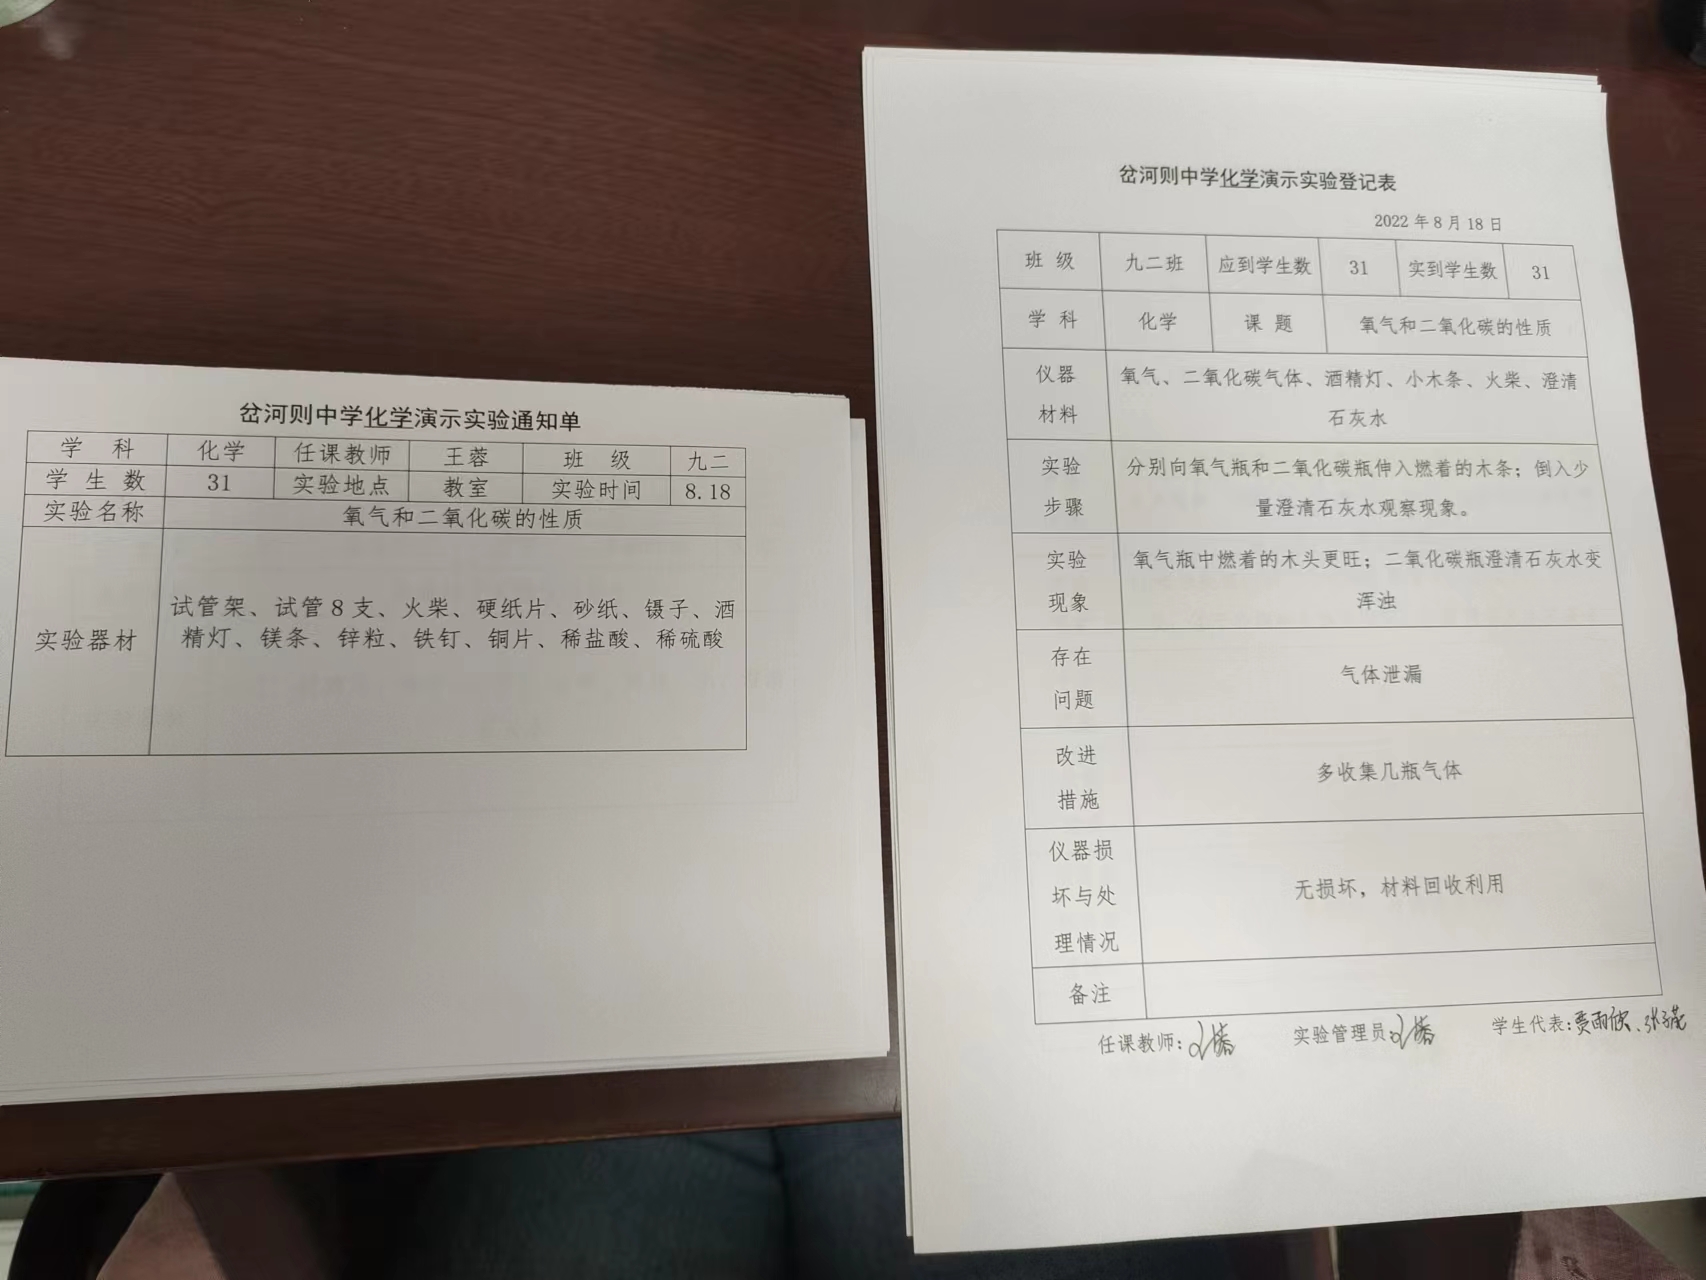 岔河则中学化学演示实验通知单
学 科 化学 任课教师 王蓉 班 级 九二
学 生 数 31 实验地点 教室 实验时间 8.18
实验名称 氧气和二氧化碳的性质
实验器材
试管架、试管8支、火柴、硬纸片、砂纸、镊子、酒
精灯、镁条、锌粒、铁钉、铜片、稀盐酸、稀硫酸
岔河则中学化学演示实验登记表
2022 年 8 月 18 日
班 级 九二班 应到学生数 31 实到学生数 31
学 科 化学 课 题 氧气和二氧化碳的性质
仪器
材料
氧气、二氧化碳气体、酒精灯、小木条、火柴、澄清
石灰水
实验
步骤
分别向氧气瓶和二氧化碳瓶伸入燃着的木条；倒入少
量澄清石灰水观察现象。
实验
现象
氧气瓶中燃着的木头更旺；二氧化碳瓶澄清石灰水变
浑浊
存在
问题
气体泄漏
改进
措施
多收集几瓶气体
仪器损
坏与处
理情况
无损坏，材料回收利用
备注
任课教师： 实验管理员 学生代表：贾雨欣、